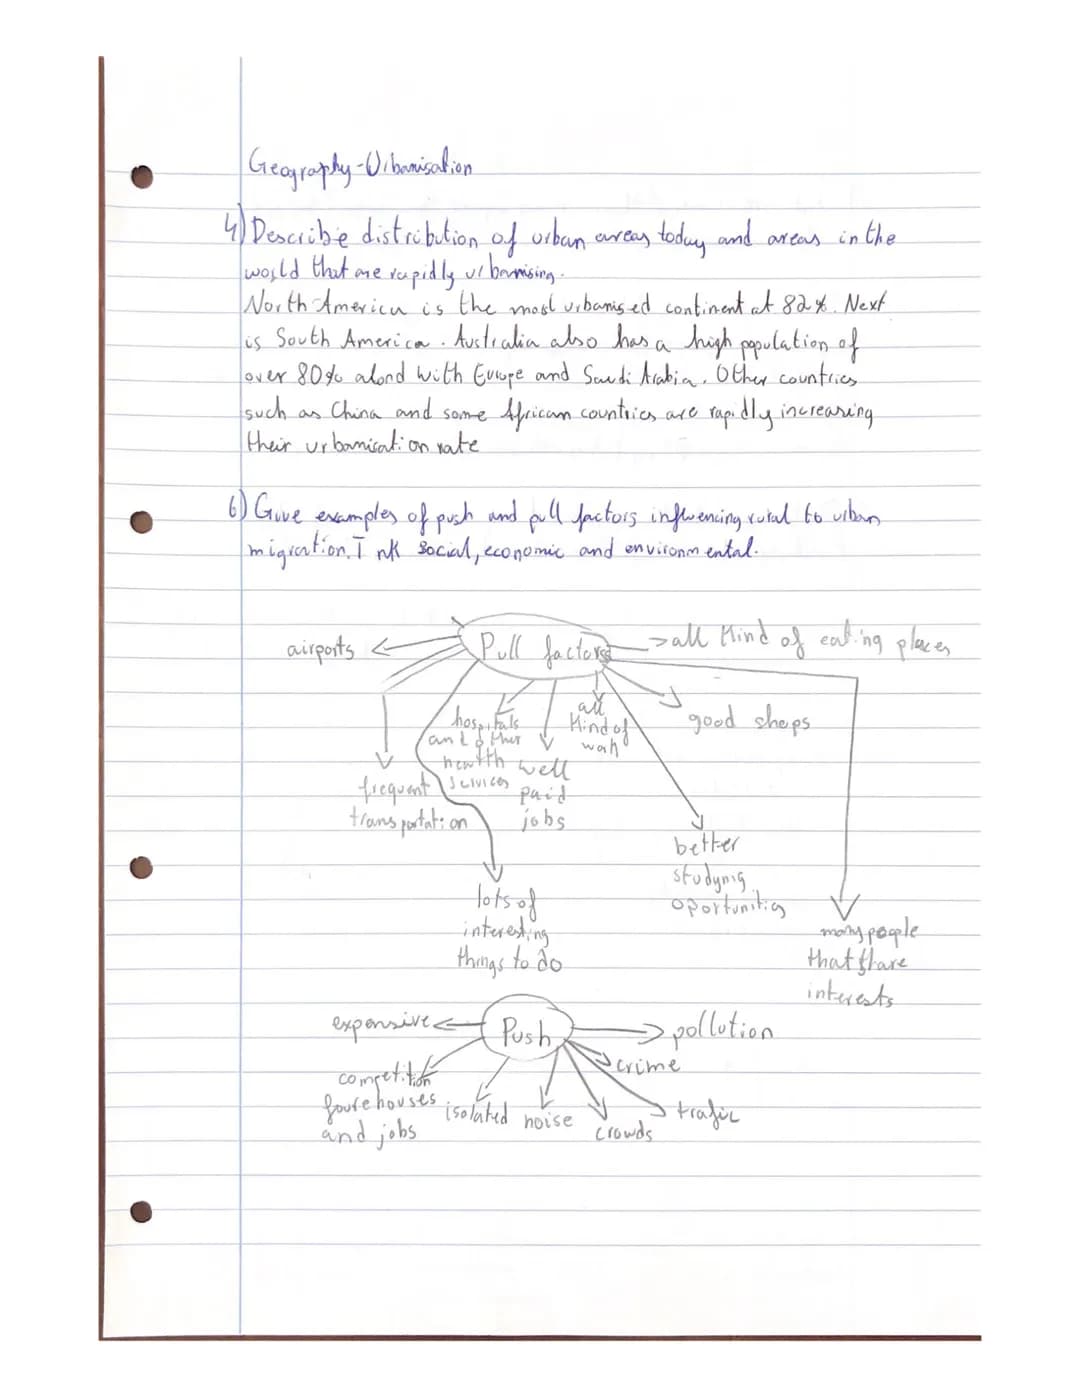 Geography - Urbanisation
4) Describe distribution of urban areas today and areas in the
world that are rapidly urbanising.
North America is the most urbanised continent at 82%. Next
is South America. Australia also has a high population of
over 80% alond with Europe and Saudi Arabia. Other countries
such as China and some African countries are rapidly increasing
their urbanisation rate
6) Give examples of push and pull factors influencing rural to urban
migration. T nk social, economic and environmental.
Pull factors
airports
all kind of eating places
hospitals
and other
health
services
all
kind of
work
good shops
frequent
transportation
well
paid
jobs
better
studying
oportunities
lots of
interesting
things to do
many people
that share
interests
Push
expensive
pollution
crime
competition
houses
and jobs
isolated
noise
crowds
trafic